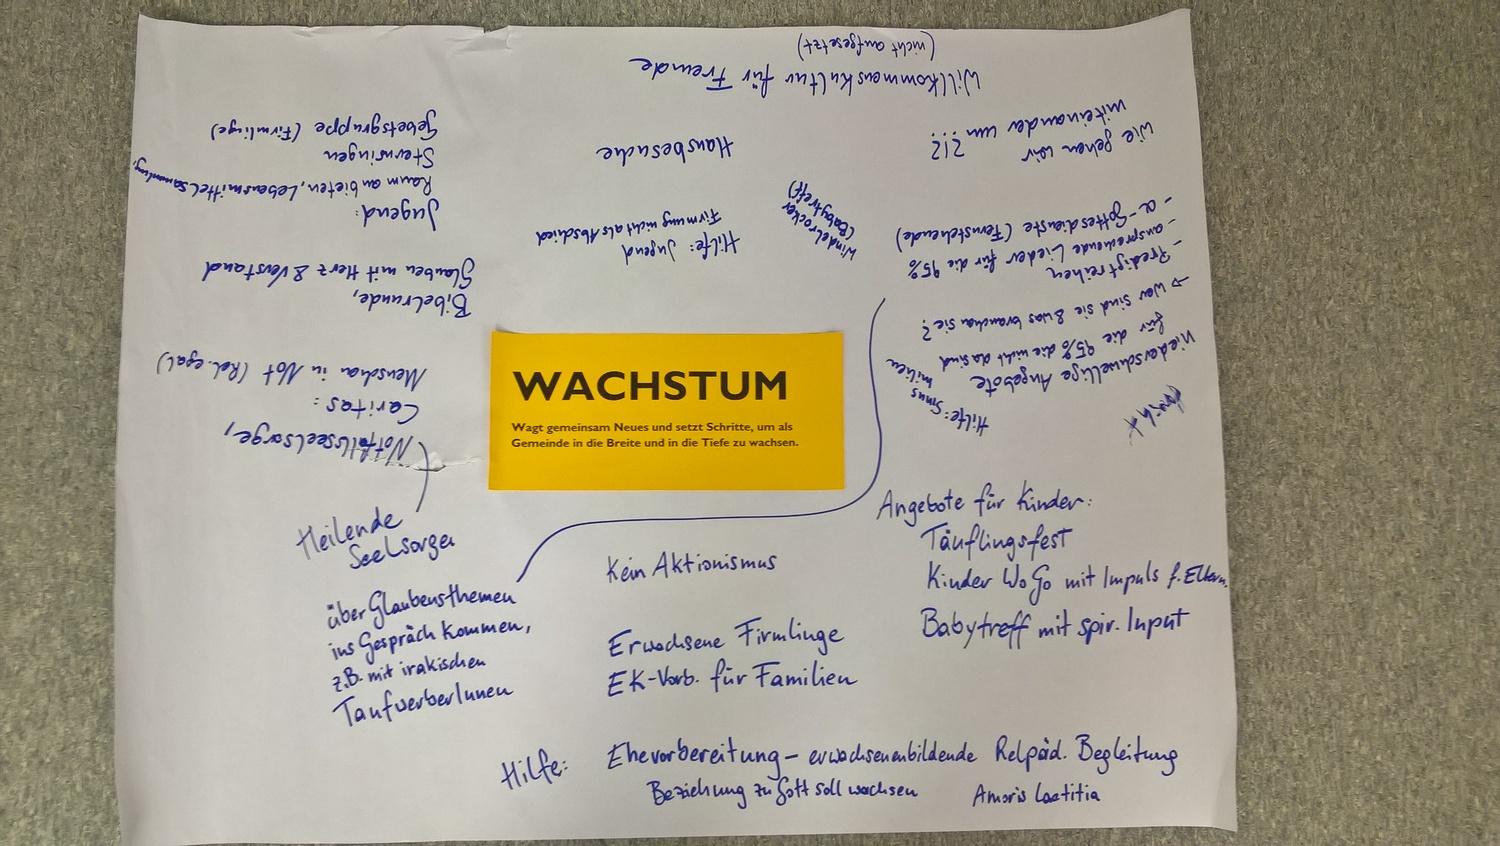 WACHSTUM
Wagt gemeinsam Neues und setzt Schritte, um als
Gemeinde in die Breite und in die Tiefe zu wachsen.
Heilende
Seelsorge
über Glaubensthemen
ins Gespräch kommen,
z.B. mit irakischen
TaufwerberInnen
Kein Aktionismus
Erwachsene Firmlinge
EK-Vorb. für Familien
Angebote für Kinder:
Täuflingsfest
Kinder WoGo mit Impuls f. Eltern
Babytreff mit spir. Input
Hilfe: Ehevorbereitung – erwachsenenbildende Relpäd. Begleitung
Beziehung zu Gott soll wachsen Amoris Laetitia
Niederschwellige Angebote
für die 95% die nicht da sind
→ wer sind sie & was brauchen sie?
- Predigtreihen
- ansprechende Lieder für die 95%
- α-Gottesdienste (Fernstehende)
Hilfe: Sinus
milieu
Wie gehen wir
miteinander um !!! ?!?
Windelrocker
(Babytreff)
Hilfe: Jugend
Firmung nicht als Abschied
Hausbesuche
Willkommenskultur für Freunde
(nicht aufgesetzt)
Notfallseelsorge,
Caritas:
Menschen in Not (Rel. egal)
Bibelrunde,
Glauben mit Herz & Verstand
Jugend:
Raum anbieten, Lebensmittelsammlung,
Sternsingen
Gebetsgruppe (Firmlinge)